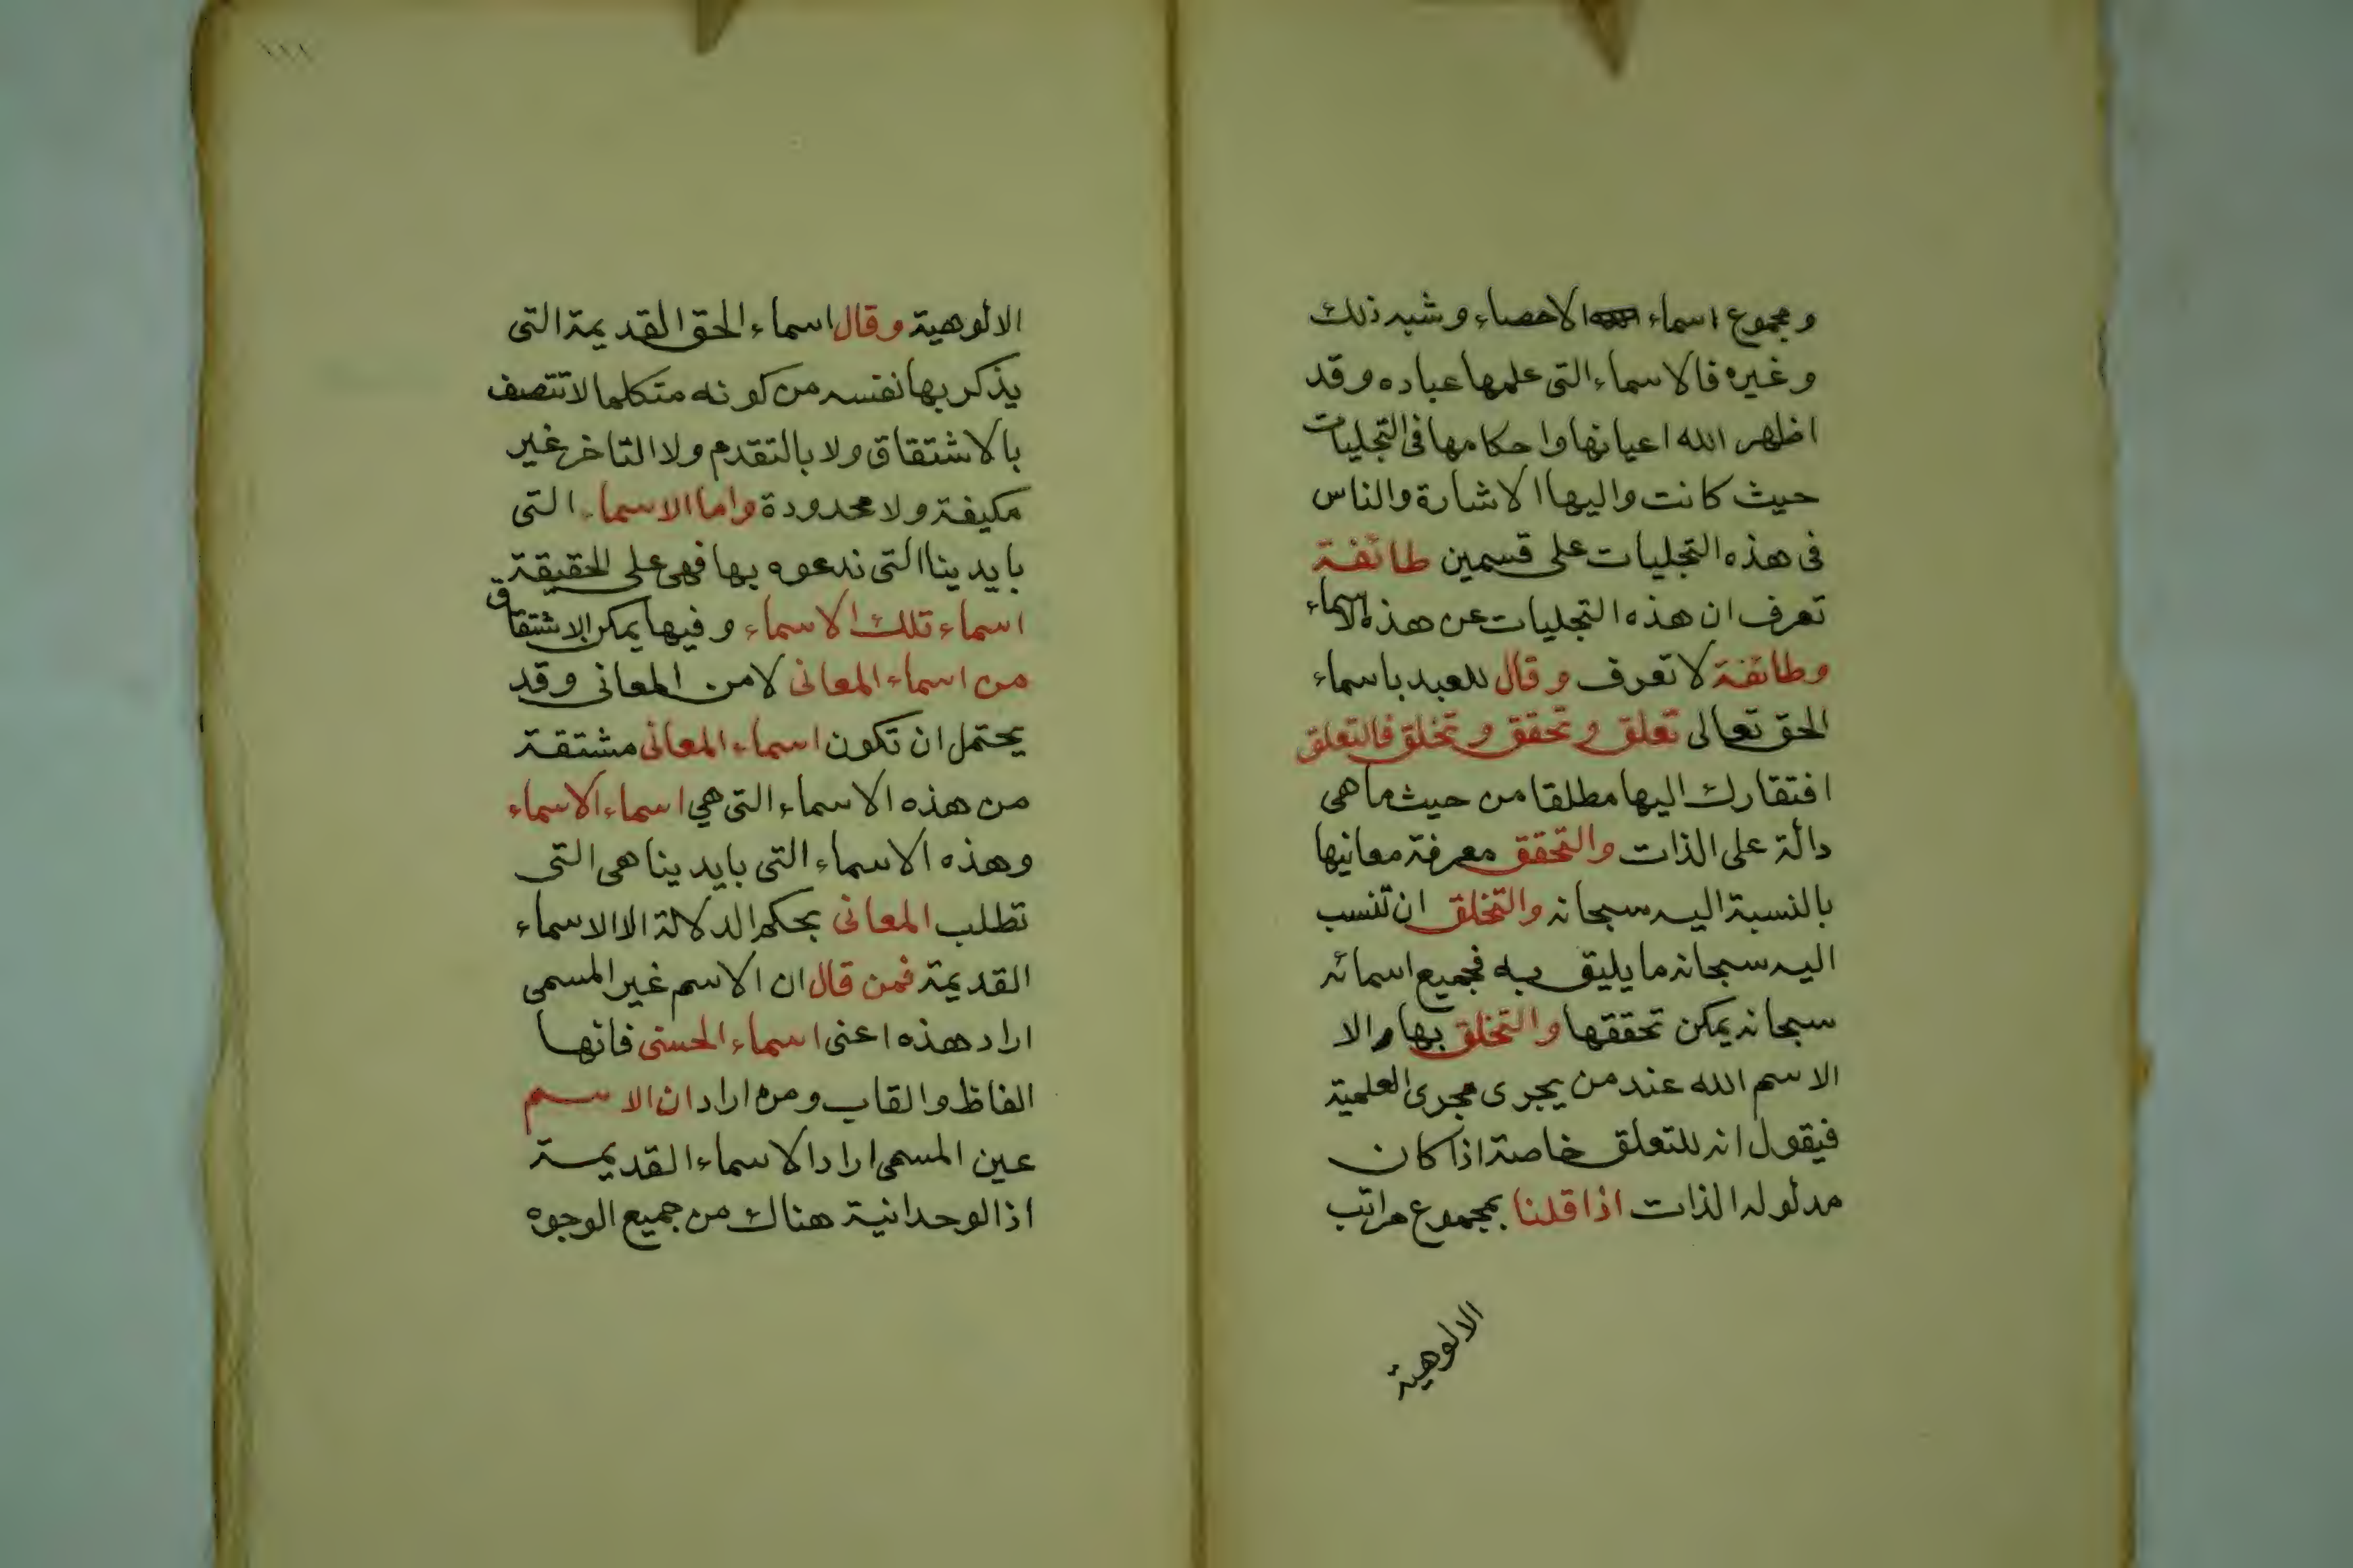 ومجموع اسماء الاحصاء وشبه ذلك
وغيره فالاسماء التى علمها عباده وقد
اظهر الله اعيانها واحكامها فى التجليات
حيث كانت واليها الاشارة والناس
فى هذه التجليات على قسمين طائفة
تعرف ان هذه التجليات عن هذه الاسماء
وطائفة لا تعرف وقال للعبد باسماء
الحق تعالى تعلق وتحقق وتخلق فالتعلق
افتقارك اليها مطلقا من حيث ما هى
دالة على الذات والتحقق معرفة معانيها
بالنسبة اليه سبحانه والتخلق ان تنسب
اليه سبحانه ما يليق به فجميع اسمائه
سبحانه يمكن تحققها والتخلق بها والا
الاسم الله عند من يجرى مجرى العلمية
فيقول انه للتعلق خاصة اذا كان
مدلوله الذات اذا قلنا بمجموع مراتب
الالوهية
١١١
الالوهية وقال اسماء الحق القديمة التى
يذكر بها نفسه من كونه متكلما لا تتصف
بالاشتقاق ولا بالتقدم ولا التاخر غير
مكيفة ولا محدودة واما الاسماء التى
بايدينا التى ندعوه بها فهى على الحقيقة
اسماء تلك الاسماء وفيها يمكن الاشتقاق
من اسماء المعانى لا من المعانى وقد
يحتمل ان تكون اسماء المعانى مشتقة
من هذه الاسماء التى هي اسماء الاسماء
وهذه الاسماء التى بايدينا هى التى
تطلب المعانى بحكم الدلالة الا الاسماء
القديمة فمن قال ان الاسم غير المسمى
اراد هذه اعنى اسماء الحسنى فانها
الفاظ والقاب ومن اراد ان الاسم
عين المسمى اراد الاسماء القديمة
اذ الوحدانية هناك من جميع الوجوه